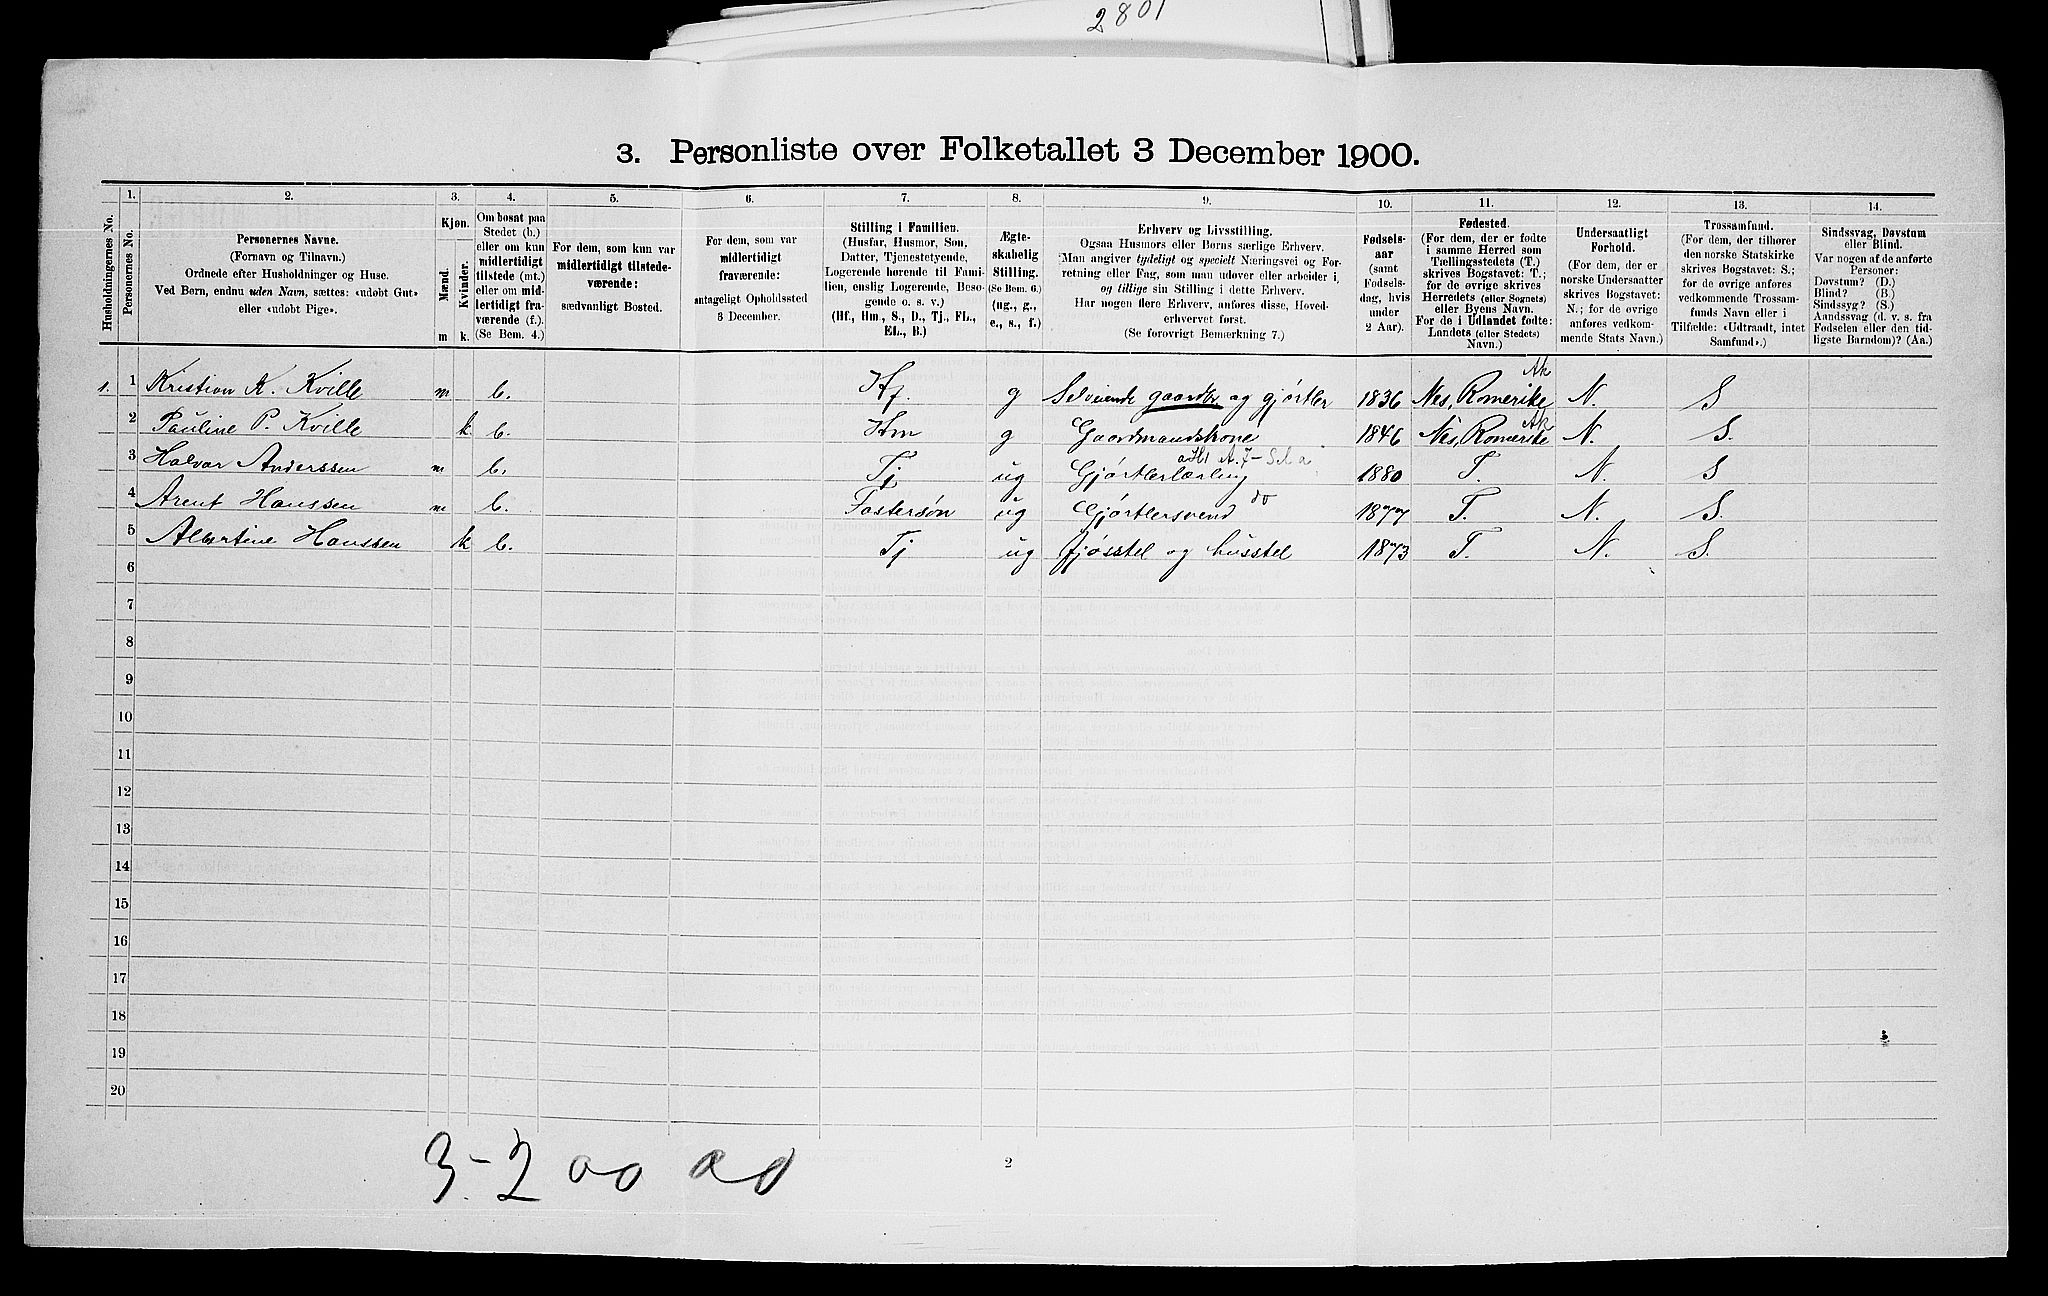 2801
3. Personliste over Folketallet 3 December 1900.
1. 2. 3. 4. 5. 6. 7. 8. 9. 10. 11. 12. 13. 14.
Husholdningernes No.
Personernes No.
Personernes Navne.
(Fornavn og Tilnavn.)
Ordnede efter Husholdninger og Huse.
Ved Børn, endnu uden Navn, sættes: «udøbt Gut»
eller «udøbt Pige».
Kjøn.
Mænd.
Kvinder.
m k.
Om bosat paa
Stedet (b.)
eller om kun
midlertidigt
tilstede (mt.)
eller om mid-
lertidigt fra-
værende (f.).
(Se Bem. 4.)
For dem, som kun var
midlertidigt tilstede-
værende:
sædvanligt Bosted.
For dem, som var
midlertidigt
fraværende:
antageligt Opholdssted
3 December.
Stilling i Familien.
(Husfar, Husmor, Søn,
Datter, Tjenestetyende,
Logerende hørende til Fami-
lien, enslig Logerende, Besø-
gende o. s. v.)
(Hf., Hm., S., D., Tj., FL.,
EL., B.)
Ægte-
skabelig
Stilling.
(Se Bem. 6.)
(ug., g.,
e., s., f.)
Erhverv og Livsstilling.
Ogsaa Husmors eller Børns særlige Erhverv.
Man angiver tydeligt og specielt Næringsvei og For-
retning eller Fag, som man udøver eller arbeider i,
og tillige sin Stilling i dette Erhverv.
Har nogen flere Erhverv, anføres disse, Hoved-
erhvervet først.
(Se forøvrigt Bemærkning 7.)
Fødsels-
aar
(samt
Fødsels-
dag, hvis
under
2 Aar).
Fødested.
(For dem, der er fødte
i samme Herred som
Tællingsstedets (T.)
skrives Bogstavet: T.;
for de øvrige skrives
Herredets (eller Sognets)
eller Byens Navn.
For de i Udlandet fødte:
Landets (eller Stedets)
Navn.)
Undersaatligt
Forhold.
(For dem, der er
norske Undersaatter
skrives Bogstavet:
N.; for de øvrige
anføres vedkom-
mende Stats Navn.)
Trossamfund.
(For dem, der tilhører
den norske Statskirke
skrives Bogstavet: S.;
for de øvrige anføres
vedkommende Trossam-
funds Navn eller i
Tilfælde: «Udtraadt, intet
Samfund».)
Sindssvag, Døvstum
eller Blind.
Var nogen af de anførte
Personer:
Døvstum? (D.)
Blind? (B.)
Sindssyg? (S.)
Aandssvag (d. v. s. fra
Fødselen eller den tid-
ligste Barndom)? (Aa.)
1. 1 Kristian K. Kville m b. Hf. g Selveiende gaardbr og gjørtler 1836 Nes, Romerike Ak N. S
2 Pauline P. Kville k b. Hm g Gaardmandskone 1846 Nes, Romerike Ak N. S.
3 Halvor Anderssen m b. Tj ug Gjørtlerlærling 1880 T. N. S
4 Arent Hanssen m b. Fostersøn ug Gjørtlersvend do 1877 T. N. S.
5 Albertine Hanssen k b. Tj ug fjøsstel og husstel 1873 T. N. S.
6
7
8
9
10
11
12
13
14
15
16
17
18
19
20
3-2 00 00
2